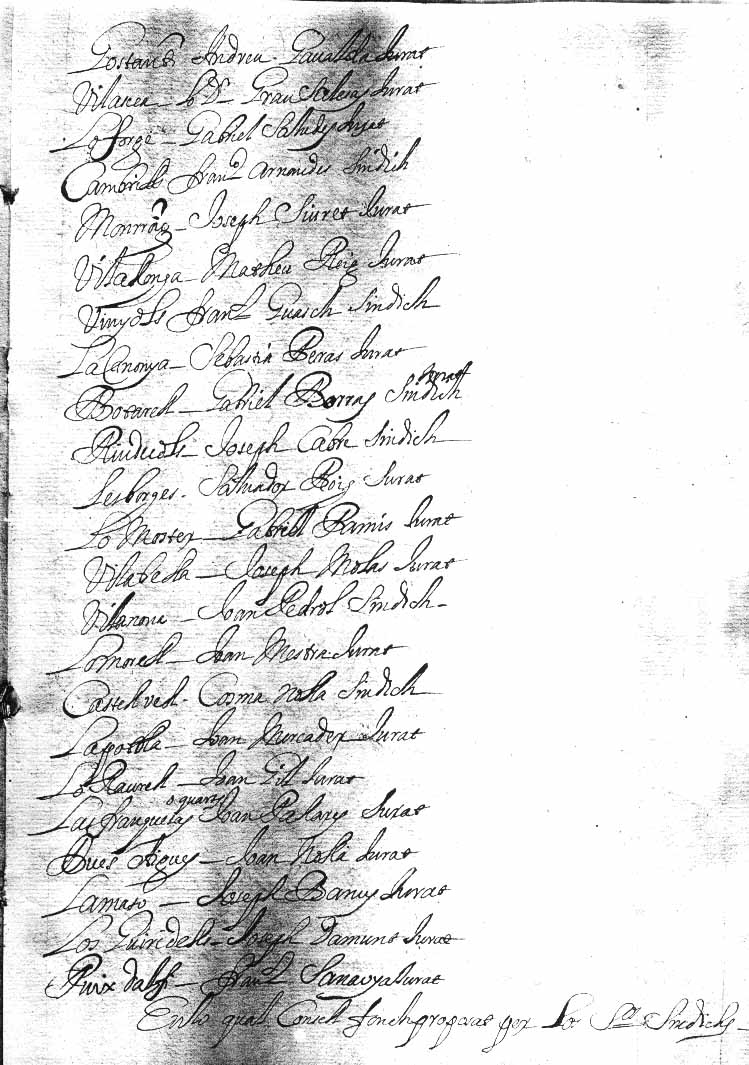 Gostan Andreu Gavalda Jurat
Vilaseca Grau Jurat
La forge - Gabriel Jurat
Cambrils Arnaudis Sindich
Monrroig - Joseph Siuret Jurat
Vilallonga - Matheu Roig Jurat
Vinyols Guasch Sindich
La Canonja - Sebastia Peras Jurat
Botarell - Gabriel Borras Sindich Jurat
Riudecols - Joseph Cabre Sindich
Lesborges - Salvador Roig Jurat
Lo Moster - Gabriell Ramis Jurat
Vilabella - Joseph Molas Jurat
Vilanova - Joan Pedrol Sindich
Lo morell - Joan Mestra Jurat
Castellvell - Cosma Nolla Sindich
La ppobla - Joan Mercader Jurat
Lo Raurell - Joan Gil Jurat
Las franquesas o quart Joan Pallares Jurat
Dues Aigues - Joan Nolla Jurat
Lamaso - Joseph Jurat
Los Guiredells - Joseph Damunt Jurat
Ruix dalls - Jurat
En lo qual Consell fonch proposat per Lo Sr. Sindichs